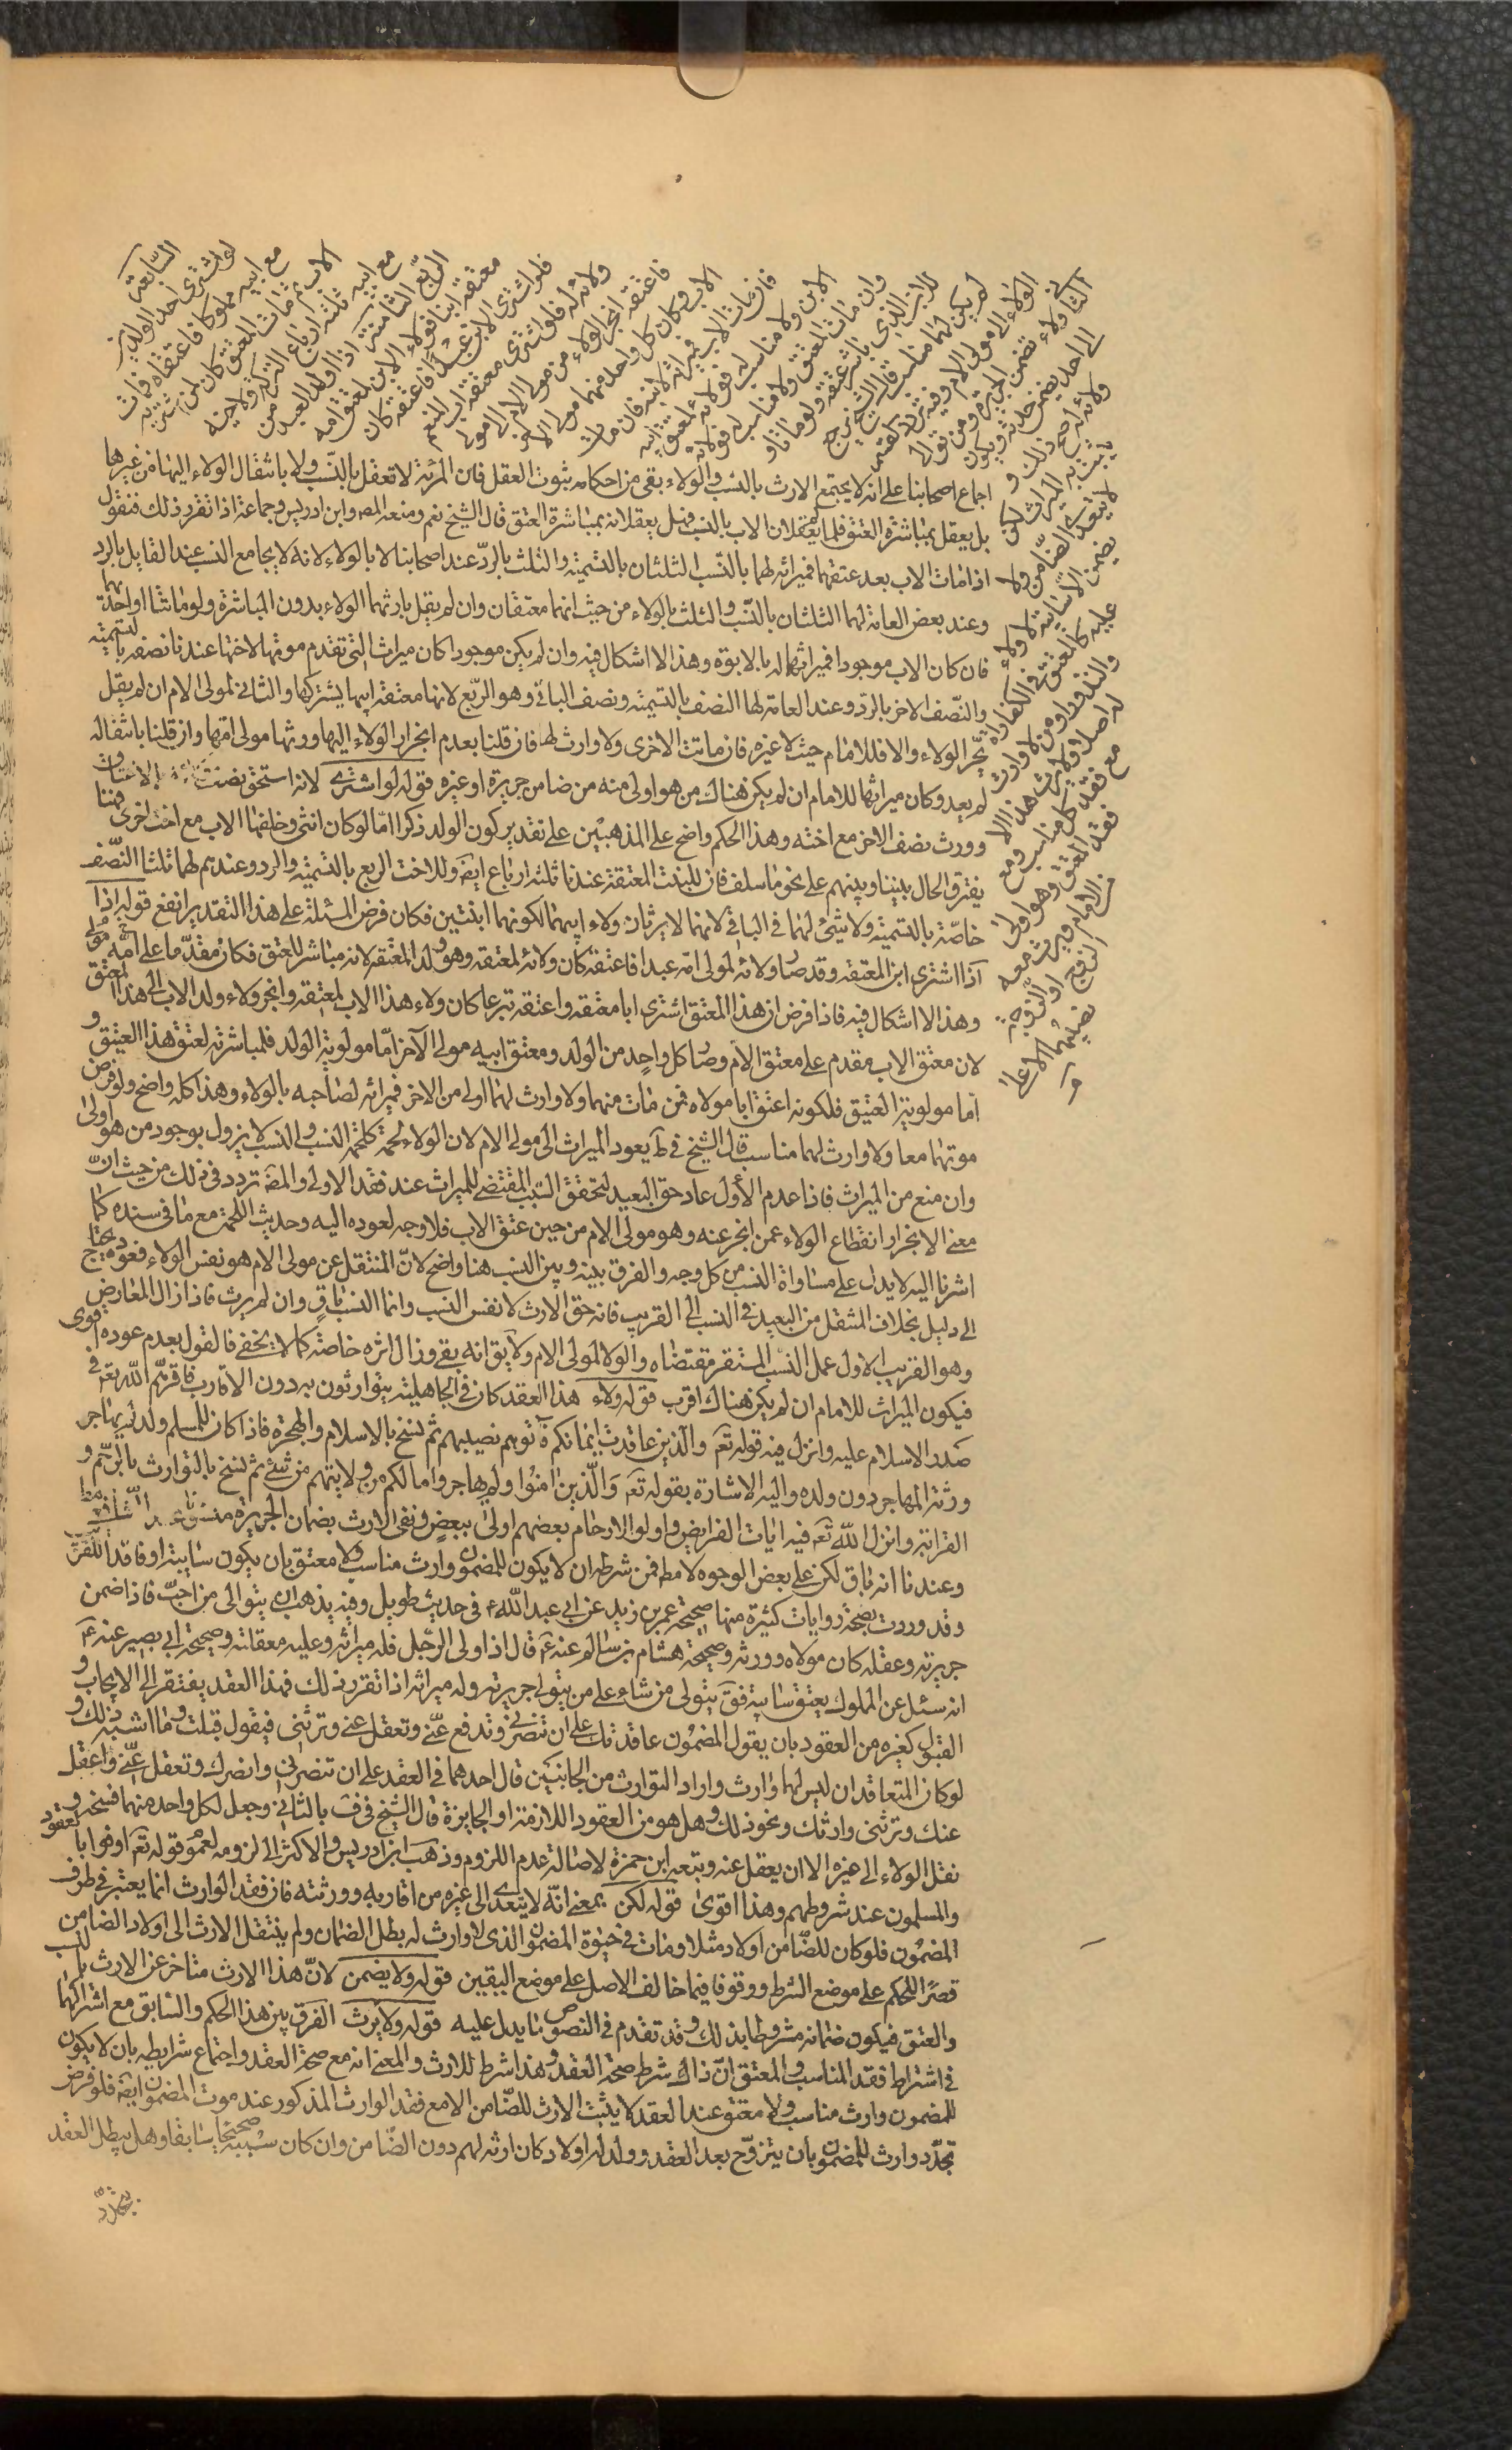 السابعة
لو اشترى احد الولدين
مع ابيه مملوكا فاعتقاه فمات
الاب ثم مات المعتق كان لمشتريه
مع ابيه ثلثة ارباع التركة ولاخيه
الربع الثامنة اذا اولد العبد من
معتقة ابنا فولاء الابن لمعتق امه
فلو اشترى الابن عبدا فاعتقه كان
ولائه له فلو اشترى معتقه اب المنعم
فاعتقه انجر الولاء من مولى الام الى مولى
الاب وكان كل واحد منهما مولى الاخر
فان مات الاب فميراثه لابنه فان مات
الابن ولا مناسب له فولائه لمعتق ابيه
وان مات المعتق ولا مناسب له فولائه
للابن الذي باشر عتقه ولو ماتا و
لم يكن لهما مناسب قال الشيخ يرجع
الولاء الى مولى الام وفيه تردد القسم
الثاني ولاء تضمن الجريرة ومن توالى
الى احد يضمن حدثه ويكون
ولائه له صح ذلك و
يثبت به الميراث لكن
لا يتعدى الضامن ولا
يضمن الا سايبة لا ولاء
عليه كالمعتق في الكفارات
والنذور او من لا وارث
له اصلا ولا يرث هذا الا
مع فقد كل مناسب ومع
فقد المعتق وهو اولى
من الامام ويرث معه
الزوج او الزوجة
نصيبهما الاعلى
اجماع اصحابنا على انه لا يجتمع الارث بالنسب والولاء بقي من احكامه ثبوت العقل فان المرئة لا تعقل بالنسب ولا بانتقال الولاء اليها من غيرها
بل يعقل بمباشرة العتق فلما لم يحملان الاب بالنسب فهل يعقلانه بمباشرة العتق قال الشيخ نعم ومنعه المص وابن ادريس وجماعة اذا تقرر ذلك فنقول
اذا مات الاب بعد عتقهما فميراثه لهما بالنسب الثلثان بالتسمية والثلث بالرد عند اصحابنا لا بالولاء لانه لا يجامع النسب عند القايل بالرد
وعند بعض العامة لهما الثلثان بالنسب والثلث بالولاء من حيث انهما معتقان وان لم يقل بارثهما الولاء بدون المباشرة ولو ماتتا او احدهما
فان كان الاب موجودا فميراثهما له بالابوة وهذا لا اشكال فيه وان لم يكن موجودا كان ميراث التي تقدم موتها لاختها عندنا نصفه بالتسمية
والنصف الاخر بالرد وعند العامة لها النصف بالتسمية ونصف الباقي وهو الربع لانها معتقة ابيها يشتركها والثاني لمولى الام ان لم يقل
بجر الولاء والا فللامام حيث لا غيره فان ماتت الاخرى ولا وارث لها فان قلنا بعدم انجرار الولاء اليها ورثها مولى امها وان قلنا بانتقاله
لم يعد وكان ميراثها للامام ان لم يكن هناك من هو اولى منه من ضامن جريرة او غيره قوله لو اشترى لانه استحق نصف
وورث نصف الاخر مع اخته وهذا الحكم واضح على المذهبين على تقدير كون الولد ذكرا اما لو كان انثى وخلفها الاب مع اخت اخرى فهنا
يفترق الحال بيننا وبينهم على نحو ما سلف فان للبنت المعتقة عندنا ثلثة ارباع ايضا وللاخت الربع بالتسمية والرد وعندهم لهما ثلثا النصف
خاصة بالتسمية ولا شيء لهما في الباقي لانهما لا يرثان ولاء ابيهما لكونهما ابنتين فكان فرض المسئلة على هذا التقدير انفع قوله اذا
اذا اشترى ابن المعتقة وقد صار ولائه لمولى امه عبدا فاعتقه كان ولائه لمعتقه وهو ولد المعتقة لانه مباشر للعتق فكان مقدما على مولى امه
وهذا لا اشكال فيه فاذا فرض ان هذا المعتق اشترى ابا معتقه واعتقه تبرعا كان ولاء هذا الاب لمعتقه وانجر ولاء ولد الاب الى هذا المعتق
لان معتق الاب مقدم على معتق الام وصار كل واحد من الولد ومعتق ابيه مولى الاخر اما مولوية الولد فلمباشرته لعتق هذا العتيق و
اما مولوية العتيق فلكونه اعتق ابا مولاه فمن مات منهما ولا وارث لهما اولى من الاخر فميراثه لصاحبه بالولاء وهذا كله واضح ولو فرض
موتهما معا ولا وارث لهما مناسب قال الشيخ في ط يعود الميراث الى مولى الام لان الولاء لحمة كلحمة النسب والنسب لا يزول بوجود من هو اولى
وان منع من الميراث فاذا عدم الاول عاد حق البعيد لتحقق السبب المقتضي للميراث عند فقد الاولى والمص تردد في ذلك من حيث ان
معنى الانجرار انقطاع الولاء عمن انجر عنه وهو مولى الام من حين عتق الاب فلا وجه لعوده اليه وحديث اللحمة مع ما في سنده كما
اشرنا اليه لا يدل على مساواة النسب من كل وجه والفرق بينه وبين النسب هنا واضح لان المنتقل عن مولى الام هو نفس الولاء فعوده يحتاج
الى دليل بخلاف المنتقل من البعيد في النسب الى القريب فانه حق الارث لا نفس النسب وانما النسب باق وان لم يرث فاذا زال المعارض
وهو القريب الاول عمل النسب المستقر مقتضاه والولاء لمولى الام ولا يق انه بقي وزال اثره خاصة كما لا يخفى فالقول بعدم عوده اقوى
فيكون الميراث للامام ان لم يكن هناك اقرب قوله ولاء هذا العقد كان في الجاهلية يتوارثون به دون الاقارب فاقرهم الله تعالى في
صدر الاسلام عليه وانزل فيه قوله تعم والذين عاقدت ايمانكم فآتوهم نصيبهم ثم نسخ بالاسلام والهجرة فاذا كان للمسلم ولد لم يهاجر
ورثه المهاجر دون ولده واليه الاشارة بقوله تعم والذين امنوا ولم يهاجروا ما لكم من ولايتهم من شئ ثم نسخ بالتوارث بالرحم و
القرابة وانزل الله تعم فيه ايات الفرايض واولوا الارحام بعضهم اولى ببعض ونفي الارث بضمان الجريرة منسوخ عند الشافعي مط
وعندنا انه باق لكن على بعض الوجوه لا مط فمن شرطه ان لا يكون للمضمون وارث مناسب ولا معتق بان يكون سايبة او فاقدا للقريب
وقد وردت بصحته روايات كثيرة منها صحيحة عمر بن زيد عن ابي عبد الله ع في حديث طويل وفيه يذهب يتوالى من احب فاذا ضمن
جريرته وعقله كان مولاه وورثه وصحيحة هشام بن سالم عنه ع قال اذا ولى الرجل فله ميراثه وعليه معقلته وصحيحة ابي بصير عنه ع
انه سئل عن المملوك يعتق سايبة فق يتولى من شاء على من يتولى جريرته وله ميراثه اذا تقرر ذلك فهذا العقد يفتقر الى الايجاب و
القبول كغيره من العقود بان يقول المضمون عاقدتك على ان تنصرني وتدفع عني وتعقل عني وترثني فيقول قبلت وما اشبه ذلك و
لو كان المتعاقدان ليس لهما وارث واراد التوارث من الجانبين قال احدهما في العقد على ان تنصرني وانصرك وتعقل عني واعقل
عنك وترثني وارثك ونحو ذلك وهل هو من العقود اللازمة او الجايزة قال الشيخ في ف بالثاني وجعل لكل واحد منهما فسخه و
نقل الولاء الى غيره الا ان يعقل عنه وتبعه ابن حمزة لاصالة عدم اللزوم وذهب ابن ادريس والاكثر الى لزومه لعموم قوله تعم اوفوا بالعقود
والمسلمون عند شروطهم وهذا اقوى قوله لكن بمعنى انه لا يتعدى الى غيره من اقاربه وورثته فان فقد الوارث انما يعتبر في طرف
المضمون فلو كان للضامن اولاد مثلا ومات في حيوة المضمون الذي لا وارث له بطل الضمان ولم ينتقل الارث الى اولاد الضامن
قصرا للحكم على موضع الشرط ووقوفا فيما خالف الاصل على موضع اليقين قوله ولا يضمن لان هذا الارث متاخر عن الارث بالنسب
والعتق فيكون ضمانه مشروطا بذلك وقد تقدم في النصوص ما يدل عليه قوله ولا يرث الفرق بين هذا الحكم والسابق مع اشتراكهما
في اشتراط فقد المناسب والمعتق ان ذاك شرط صحة العقد وهذا شرط للارث والمعنى انه مع صحة العقد واجتماع شرايطه بان لا يكون
للمضمون وارث مناسب ولا معتق عند العقد لا يثبت الارث للضامن الا مع فقد الوارث المذكور عند موت المضمون ايضا فلو فرض
تجدد وارث للمضمون بان يتزوج بعد العقد وولد له اولاد كان ارثه لهم دون الضامن وان كان سببه صحيحا سابقا وهل يبطل العقد
بتجدد